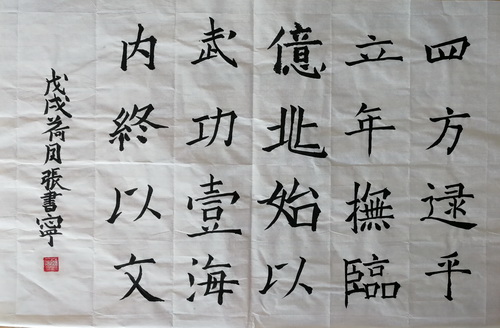 四方逮乎
立年撫臨
億兆始以
武功壹海
内終以文
戊戌荷月張書寧